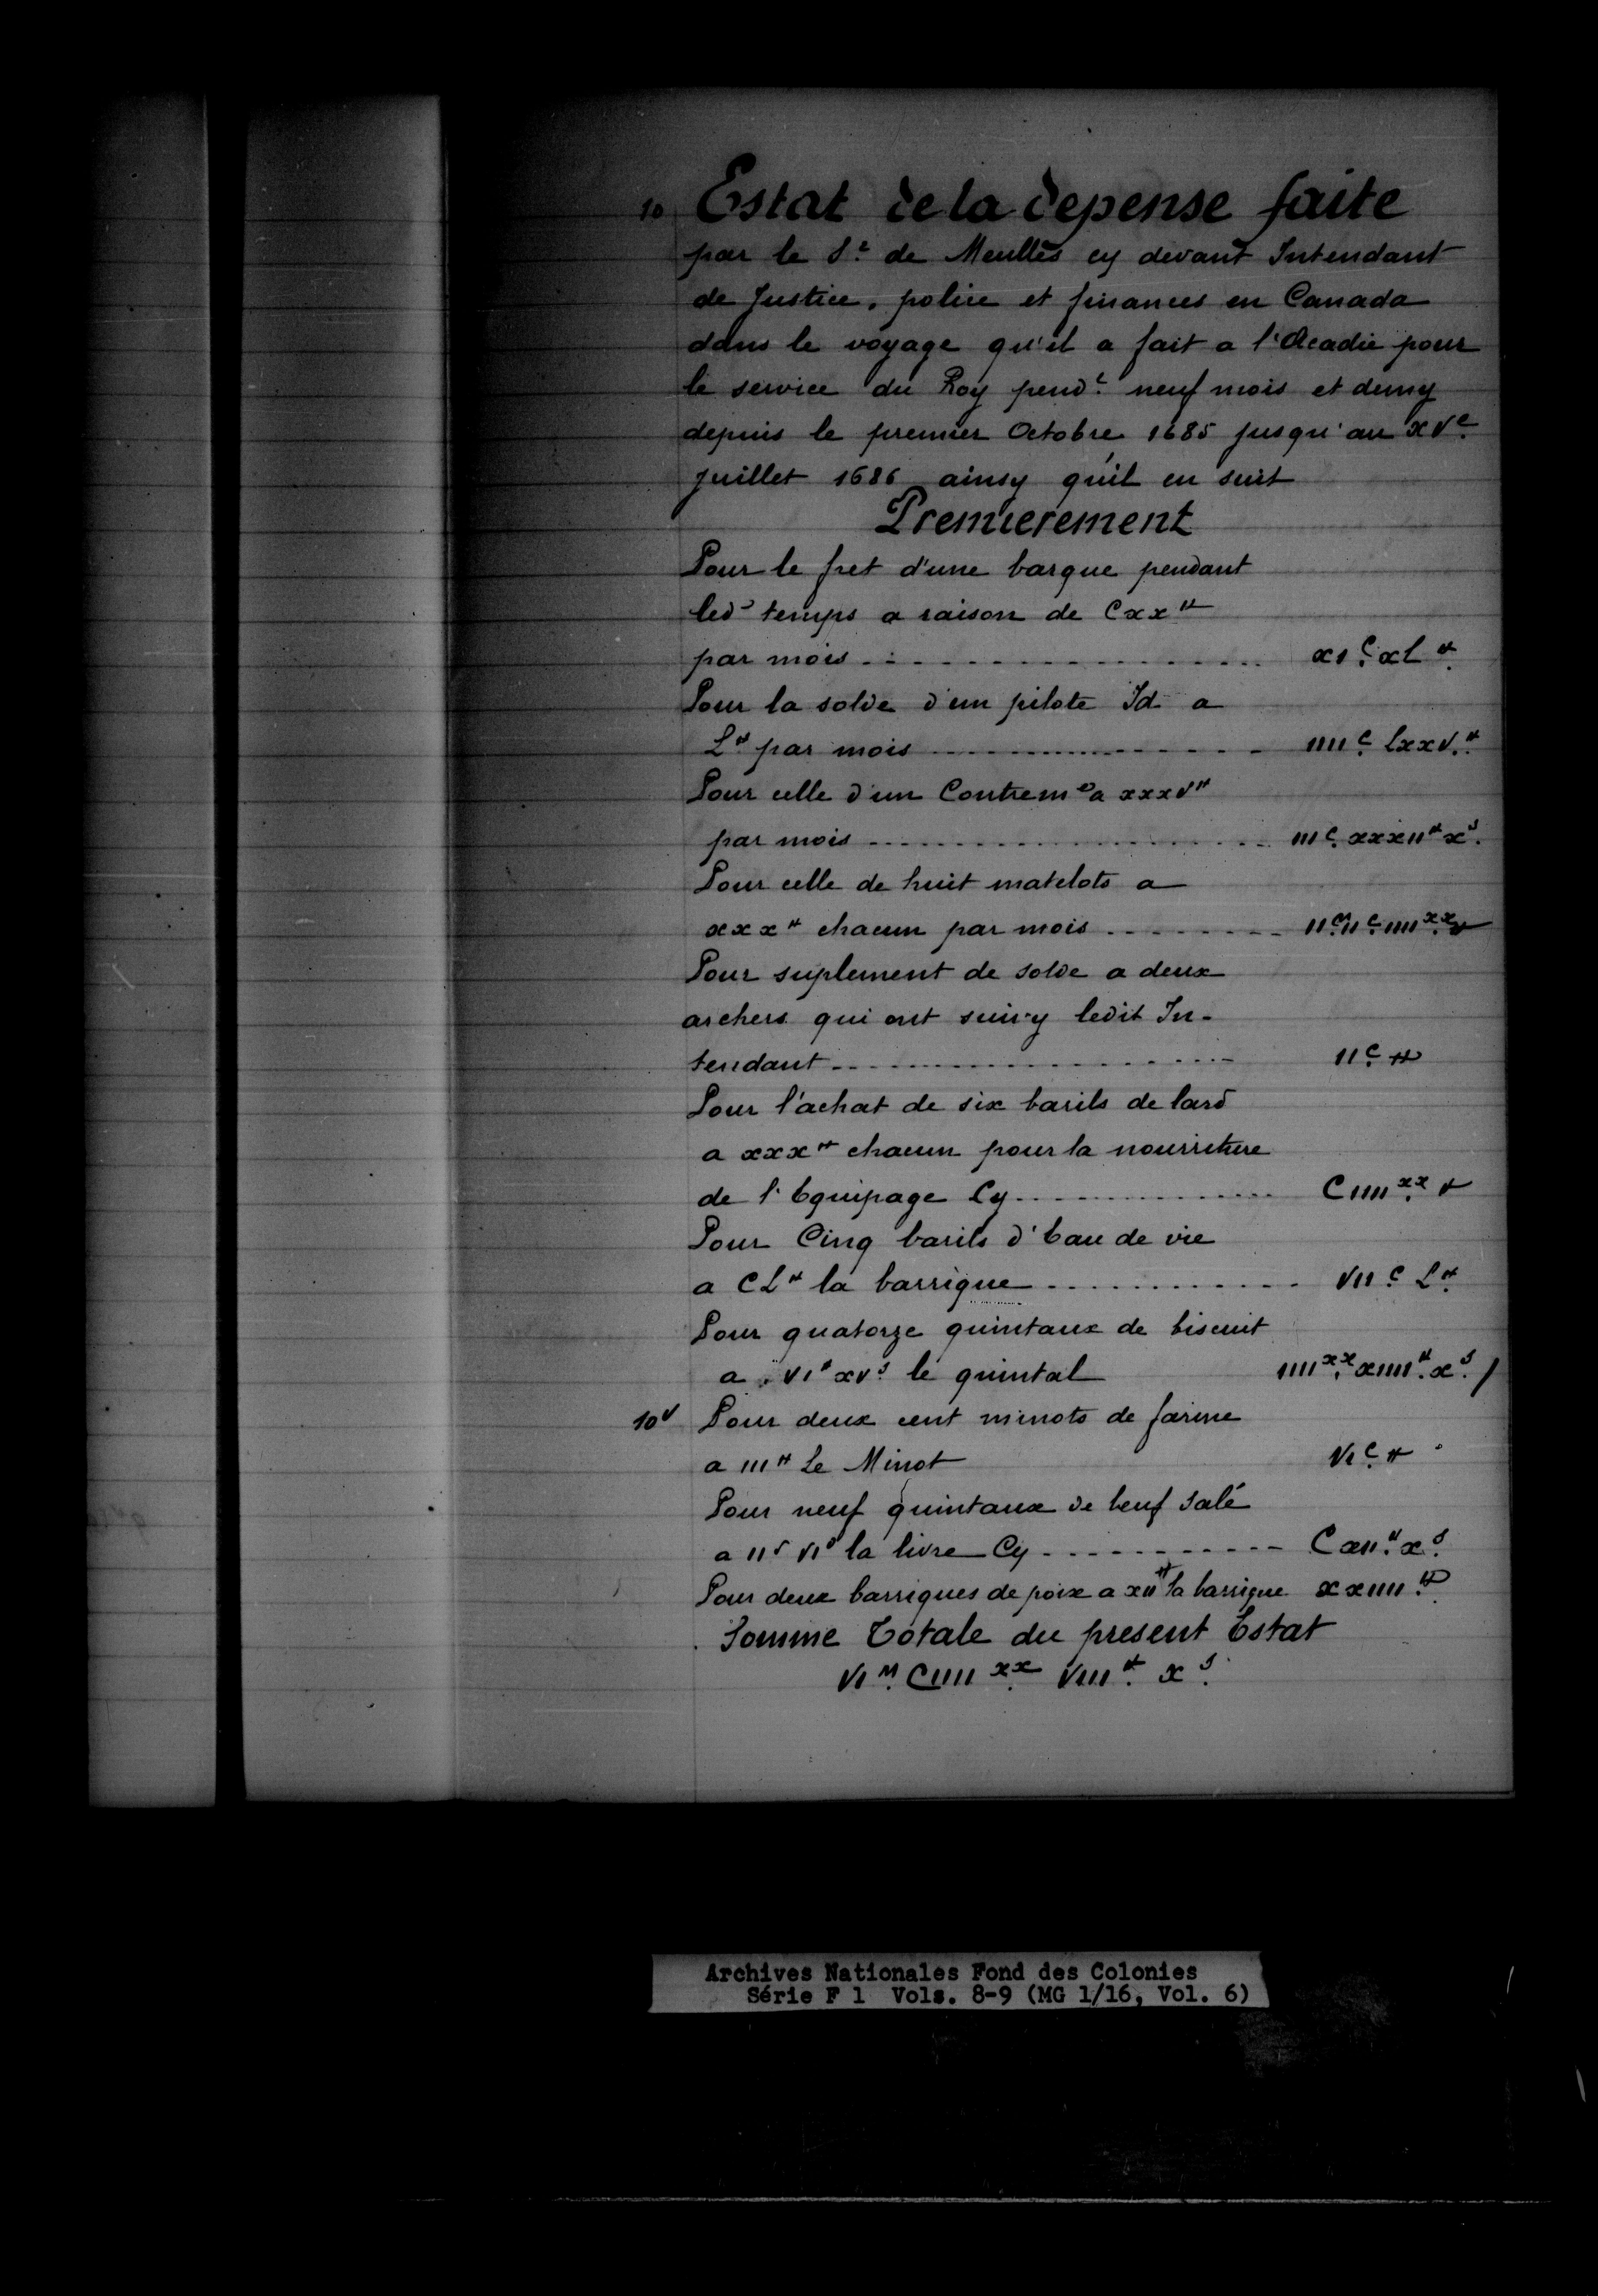 10 Estat de la depense faite
par le Sr. de Meulles cy devant Intendant
de Justice, police et finances en Canada
dans le voyage qu'il a fait a l'Acadie pour
le service du Roy pendt. neuf mois et demy
depuis le premier Octobre 1685 jusqu'au xve.
juillet 1686 ainsy qu'il en suit
Premierement
Pour le fret d'une barque pendant
led temps a raison de Cxx ₶
par mois ................ xi c. xL ₶
Pour la solde d'un pilote Id a
L ₶ par mois ................ iiii c. Lxxv. ₶
Pour celle d'un Contreme a xxxv ₶
par mois ................ iii c. xxxii ₶ x s.
Pour celle de huit matelots a
xxx ₶ chacun par mois ........ ii m. ii c. iiii xx. ₶
Pour suplement de solde a deux
archers qui ont suivy ledit In-
tendant ................ ii c. ₶
Pour l'achat de six barils de lard
a xxx ₶ chacun pour la nourriture
de l'Equipage Cy ............ C iiii xx. ₶
Pour Cinq barils d'Eau de vie
a CL ₶ la barrique ............ vii c. L ₶
Pour quatorze quintaux de biscuit
a vi ₶ xv s. le quintal iiii xx. xiiii ₶. x s. /
10v Pour deux cent minots de farine
a iii ₶ Le Minot vi c. ₶
Pour neuf quintaux de beuf salé
a ii s vi d la livre Cy ............ C xii ₶. x s.
Pour deux barriques de poix a xii ₶ la barrique xxiiii ₶
Somme Totale du present Estat
vi M. C iiii xx. viii ₶. x s.
Archives Nationales Fond des Colonies
Série F 1 Vols. 8-9 (MG 1/16, Vol. 6)